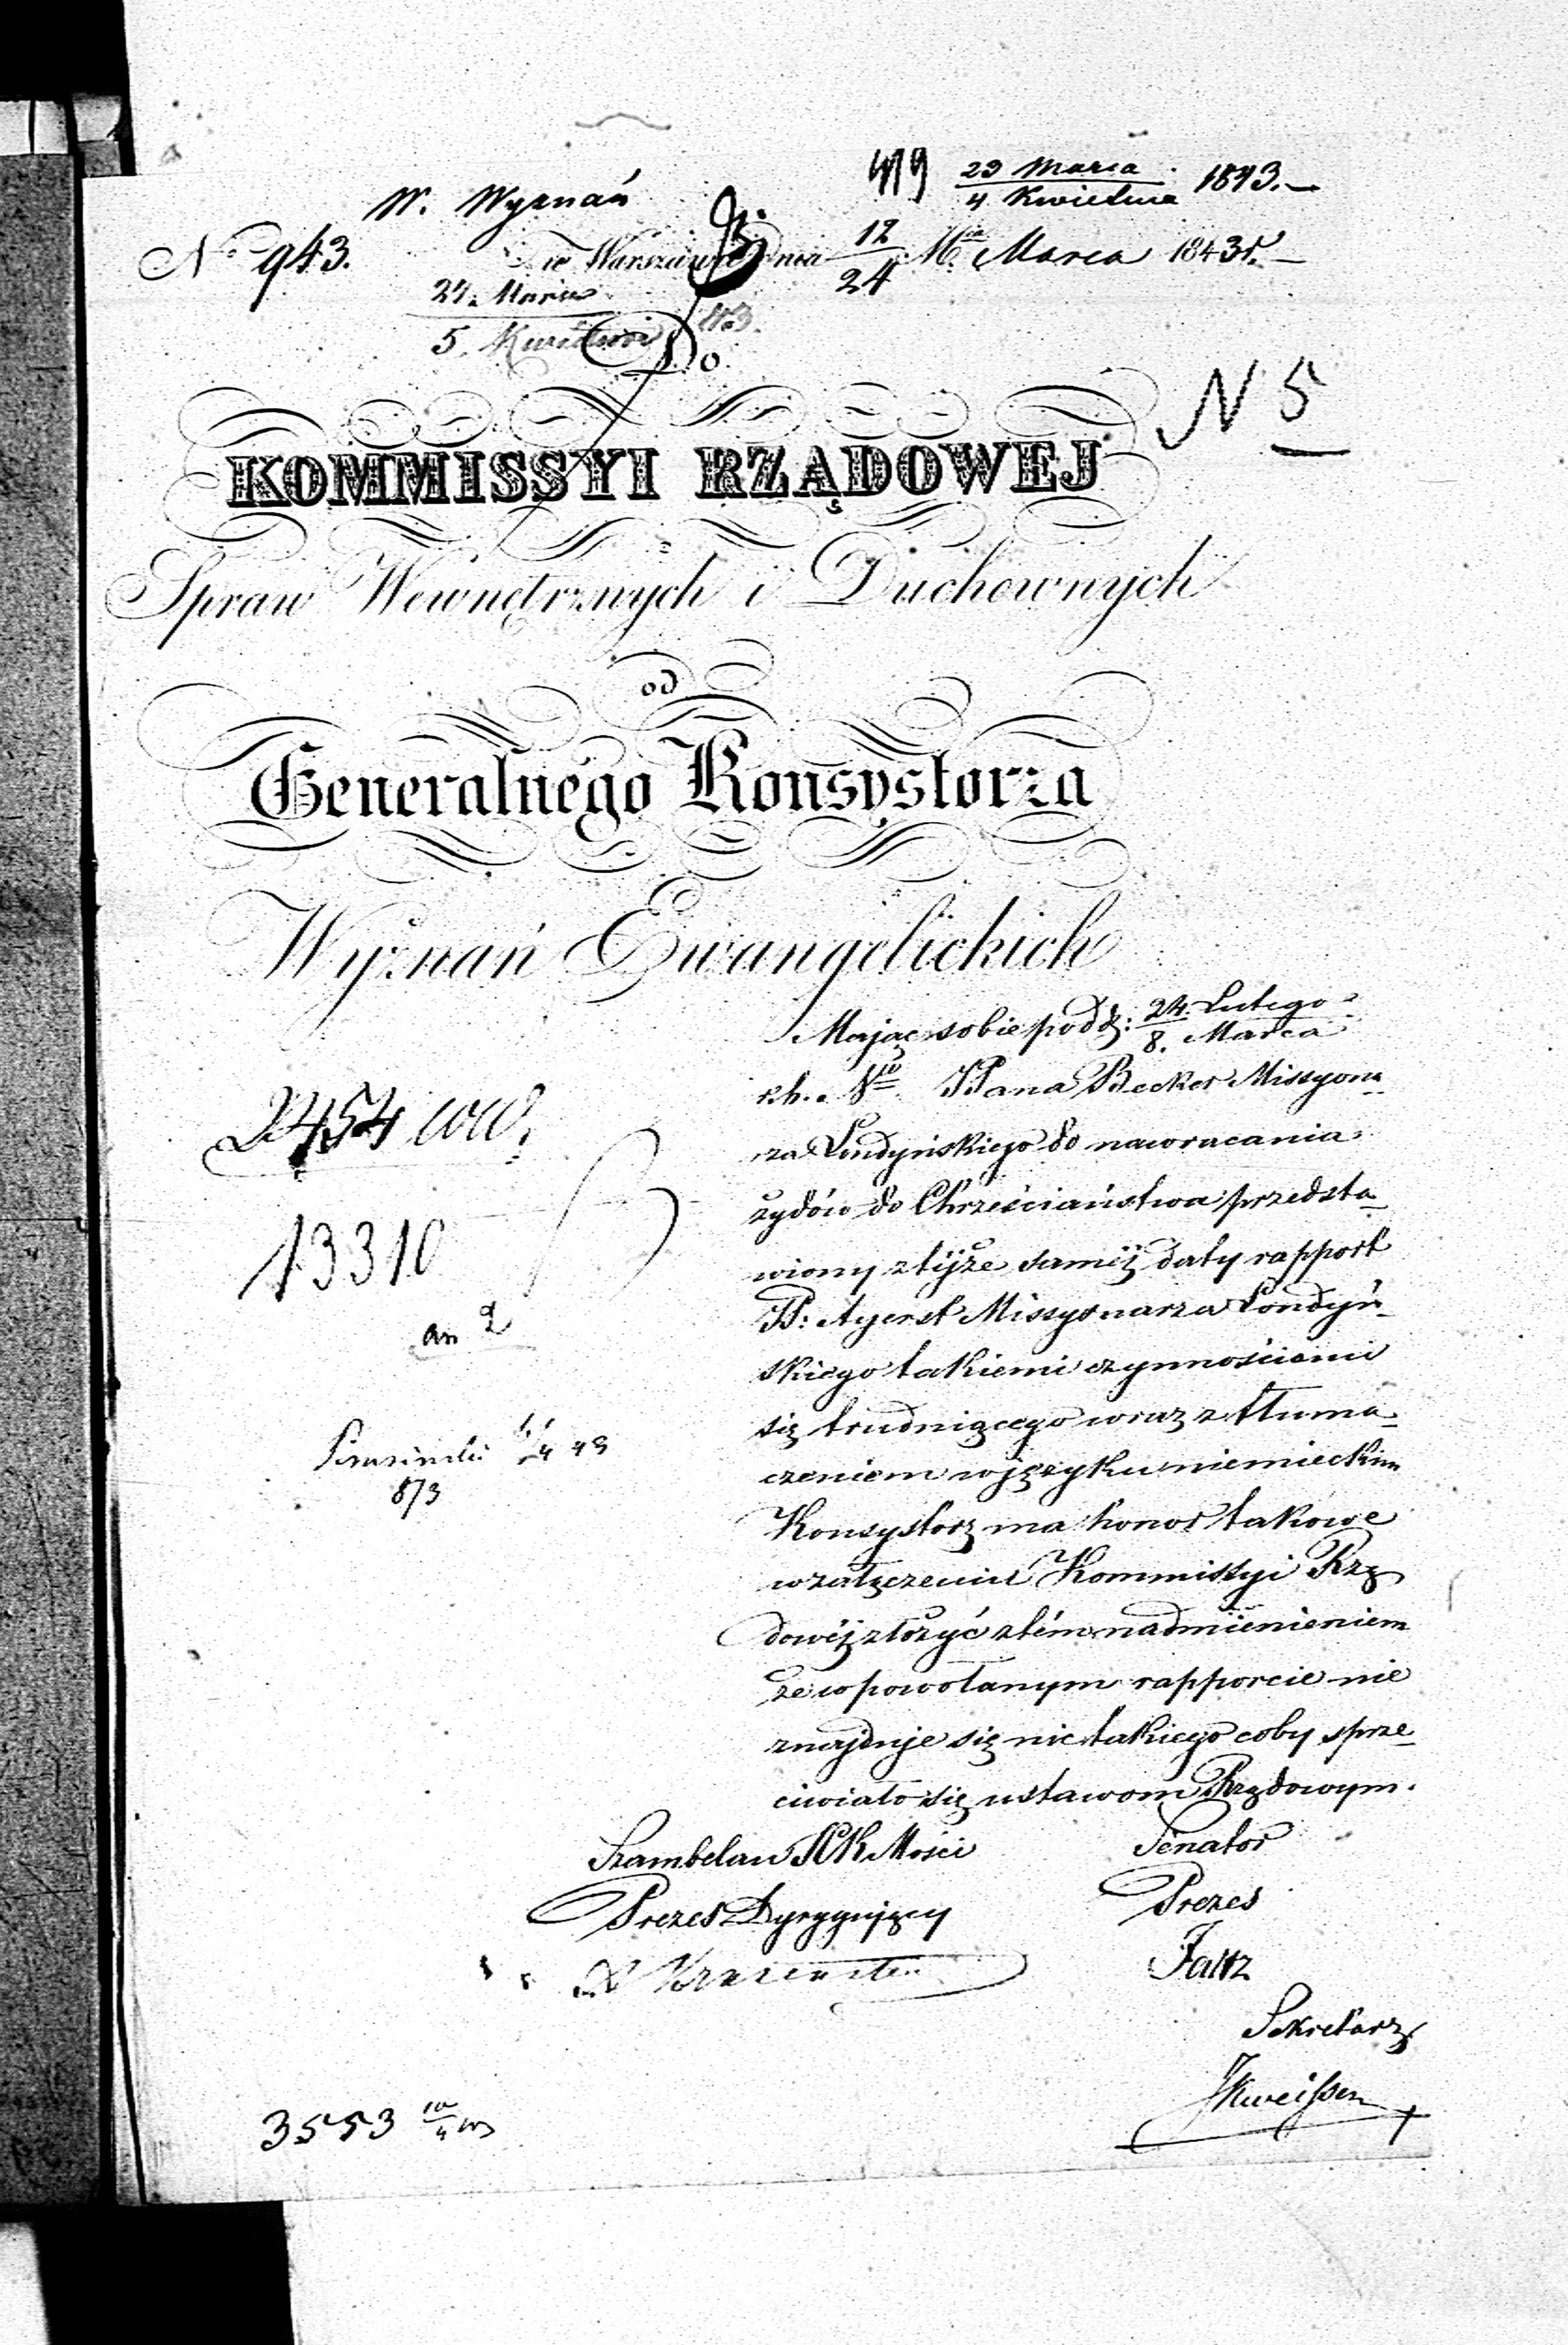 W. Wyznań
419 23 Marca / 4 Kwietnia 1843.
No 943.
w Warszawie dnia 12/24 Mca Marca 1843 r.
27. Marca
5. Kwietnia 1843.
Do
N 5
KOMMISSYI RZĄDOWEJ
Spraw Wewnętrznych i Duchownych
od
Generalnego Konsystorza
Wyznań Ewangelickich
Mając sobie pod d: 24. Lutego / 8. Marca
r.b. Pana Becker Missyona-
rza Londyńskiego do nawracania
żydów do Chrześciaństwa przedsta-
wiony z tijże saméj daty rapport
P: Ayerst Missyonarza Londyń-
skiego takiemi czynnościami
się trudniącego wraz z tłuma-
czeniem w języku niemieckim
Konsystorz ma honor takowe
w załączeniu Kommissyi Rzą
dowéj złożyć z tém nadmienieniem
że w powołanym rapporcie nie
znajduje się nic takiego coby sprze-
ciwiało się ustawom Rządowym.
2454
13310
an 2
873
Szambelan JCK Mości
Prezes Dyrygujący
Senator
Prezes
Sekretarz
3553